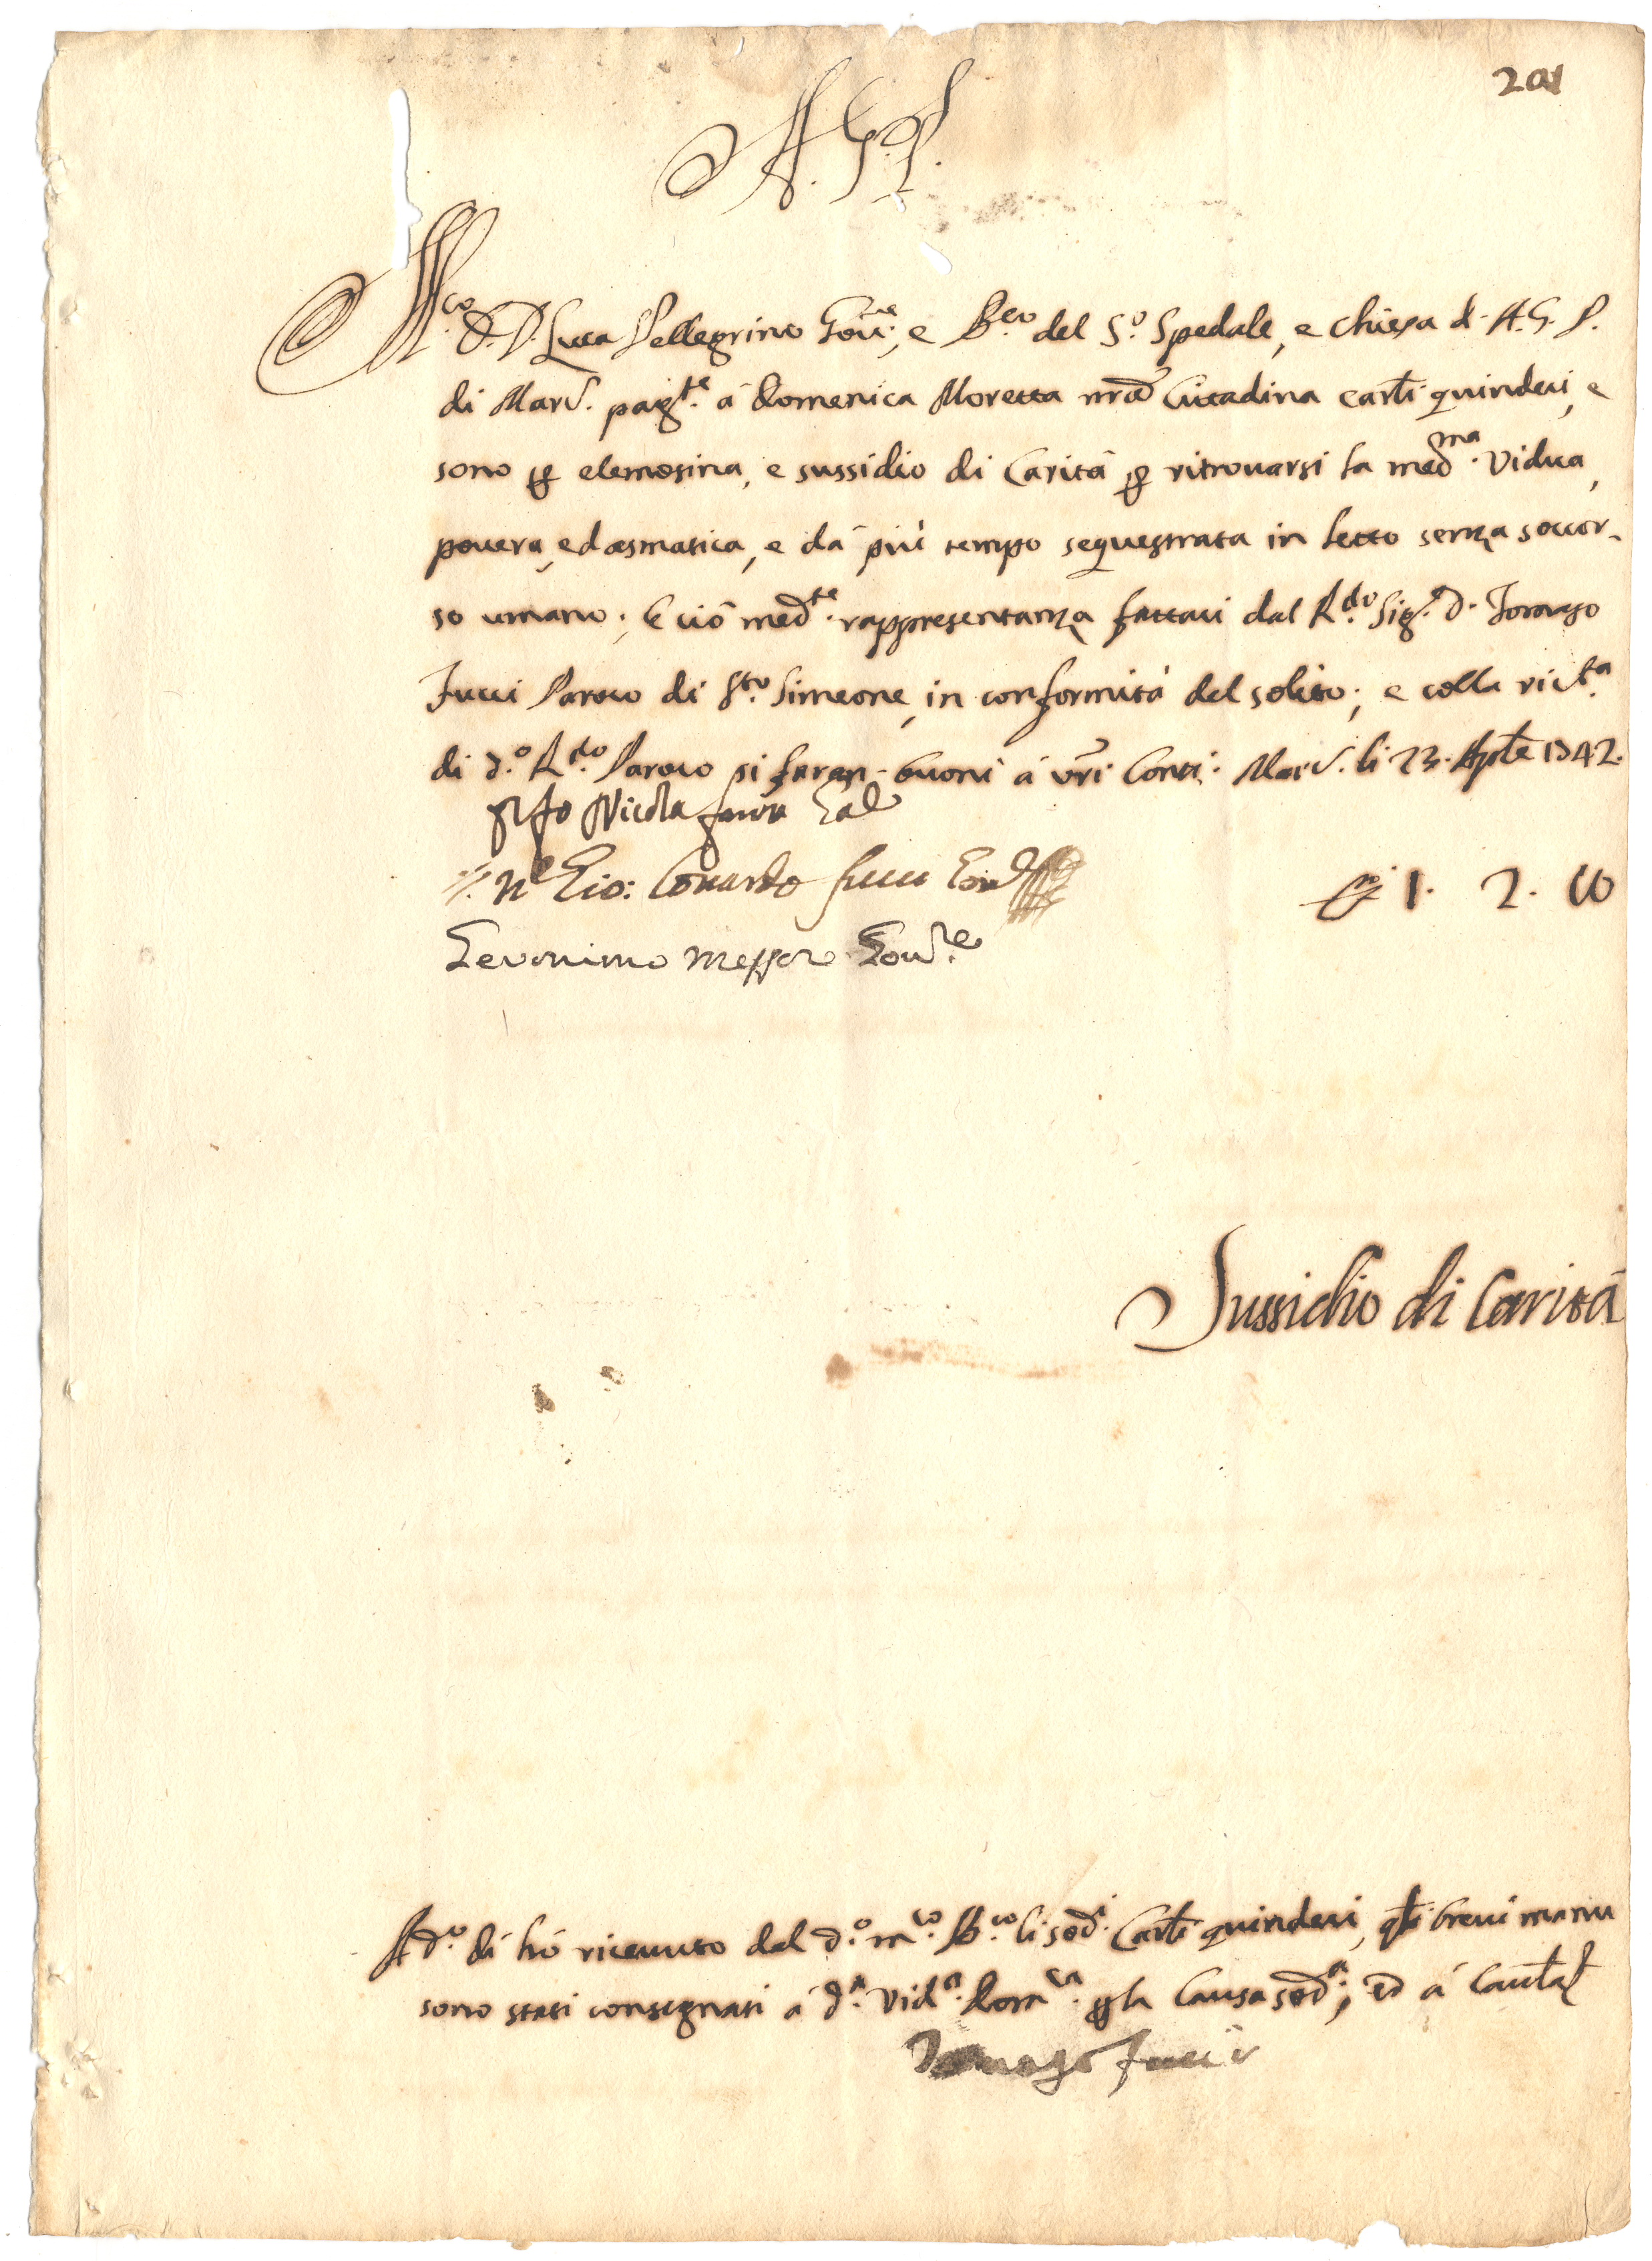 201
A. G. P.
M.co D. D. Luca Pellegrino Gov.re, e B.co del S.o Spedale, e chiesa d. A. G. P.
di Mard. pag.te á Domenica Moretta nrã Cittadina carlí quindeci, e
sono p elemosina, e sussidio di Caritá p ritrovarsi la med.ma vidua,
povera, ed asmatica, e dá piú tempo sequestrata in letto senza soccor-
so umano; E ció med.te rappresentanza fattaci dal R.do Sig.r D. Tomaso
Fucci Paroco di S.to Simeone, in conformitá del solito; e colla ric.ta
di d.o R.do Paroco si faran buoni á vrí Conti. Mard. li 23. Aple 1742.
Nicola
Gio: Lonardo Fucci Gov.
Geronimo Messere Gov.re
1. 2. 10
Sussidio di Caritá
A d.o dí hó ricevuto dal d.o m.co B.co li sod.i Carlí quindeci, qlí brevi manu
sono stati consegnati á d.a Vid.a Dom.ca p la Causa sod.a; ed á Cautla
Tomaso Fucci